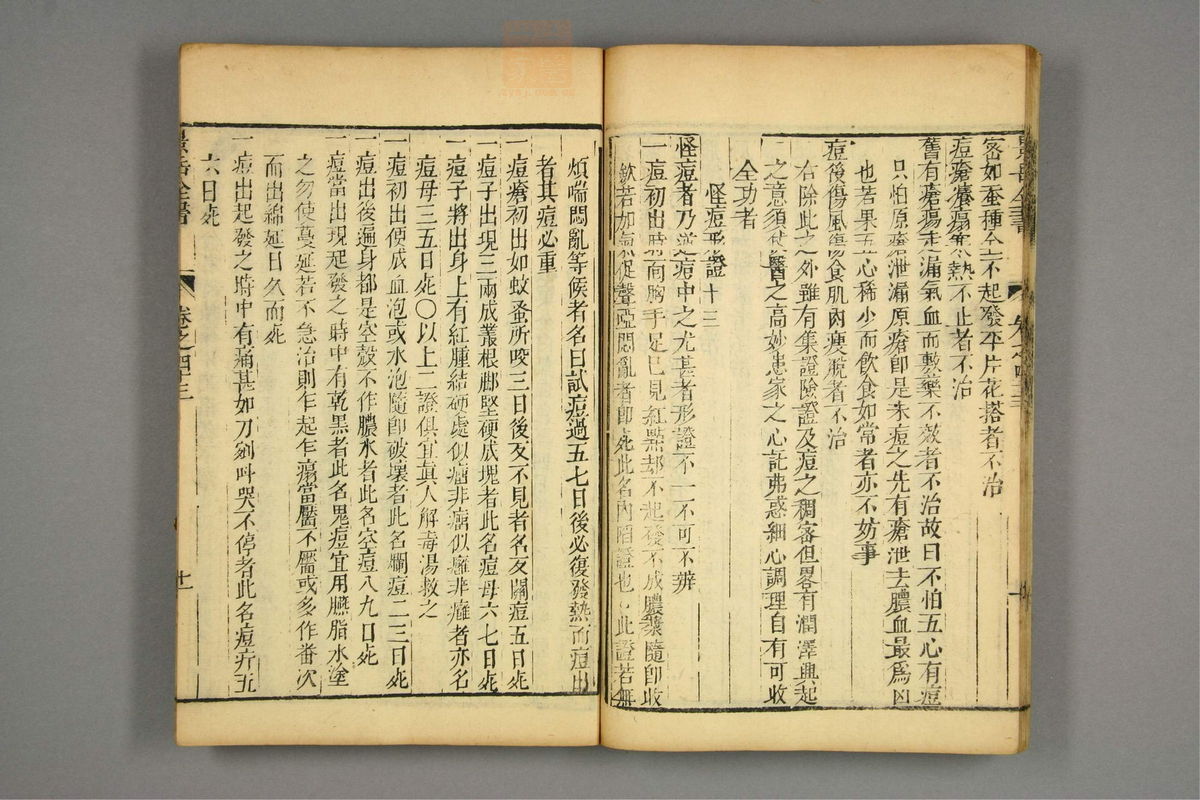 密如蚕種全不起發平片花搭者不治
痘瘡癢瘍寒熱不止者不治
舊有瘡瘍走漏氣血而敷藥不效者不治故曰不怕五心有痘
只怕原瘡泄漏原瘡卽是未痘之先有瘡泄去膿血最爲凶
也若果五心稀少而飲食如常者亦不妨事
痘後傷風傷食肌肉瘦脫者不治
右除此之外雖有集證險證及痘之稠密但畧有潤澤興起
之意須仗醫之高妙患家之心託弗惑細心調理自有可收
全功者
怪痘形證 十三
怪痘者乃逆痘中之尤甚者形證不一不可不辨
一痘初出時面胸手足已見紅點却不起發不成膿漿隨卽收
歛若加氣促聲啞悶亂者卽死此名內陷證也此證若無
煩喘悶亂等候者名曰試痘過五七日後必復發熱而痘出
者其痘必重
一痘瘡初出如蚊蚤所咬三日後反不見者名反關痘五日死
一痘子出現三兩成叢根脚堅硬成塊者此名痘母六七日死
一痘子將出身上有紅腫結硬處似瘤非瘤似癰非癰者亦名
痘母三五日死○以上二證俱宜眞人解毒湯救之
一痘初出便成血泡或水泡隨卽破壞者此名爛痘二三日死
一痘出後遍身都是空殼不作膿水者此名空痘八九日死
一痘當出現起發之時中有乾黑者此名鬼痘宜用臙脂水塗
之勿使蔓延若不急治則乍起乍瘍當靨不靨或多作畨次
而出綿延日久而死
一痘出起發之時中有痛甚如刀剜呌哭不停者此名痘疔五
六日死
景岳全書
卷之四十三
十一